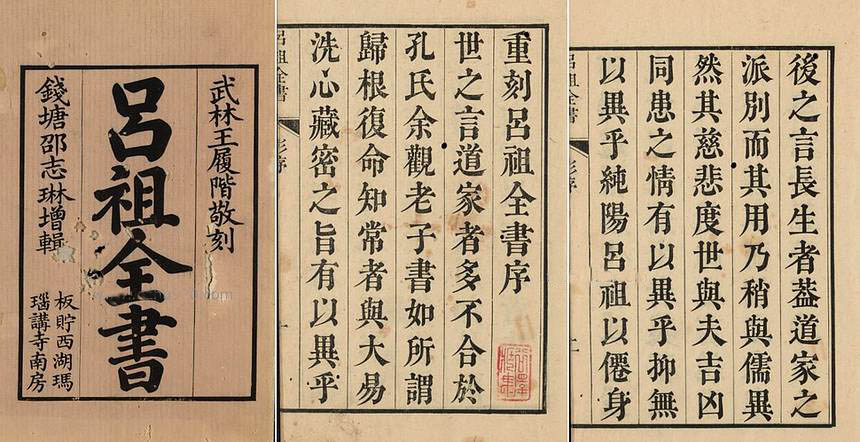 武林王履階敬刻
呂祖全書
錢塘邵志琳增輯
板貯西湖瑪
瑙講寺南房
重刻呂祖全書序
世之言道家者多不合於
孔氏余觀老子書如所謂
歸根復命知常者與大易
洗心藏密之旨有以異乎
呂祖全書
彭序
一
後之言長生者葢道家之
派別而其用乃稍與儒異
然其慈悲度世與夫吉凶
同患之情有以異乎抑無
以異乎純陽呂祖以僊身
呂祖全書
彭序
二